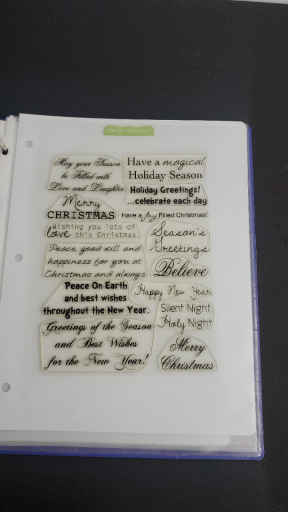 May your Season
be Filled with
Love and Laughter
Have a magical
Holiday Season
Holiday Greetings!
...celebrate each day
Merry
CHRISTMAS
Have a Joy Filled Christmas!
Wishing you lots of
Love this Christmas
Season's
Greetings
Peace, good will and
happiness for you at
Christmas and always
Believe
Peace On Earth
and best wishes
throughout the New Year.
Happy New Year
Silent Night
Holy Night
Greetings of the Season
and Best Wishes
for the New Year!
Merry
Christmas